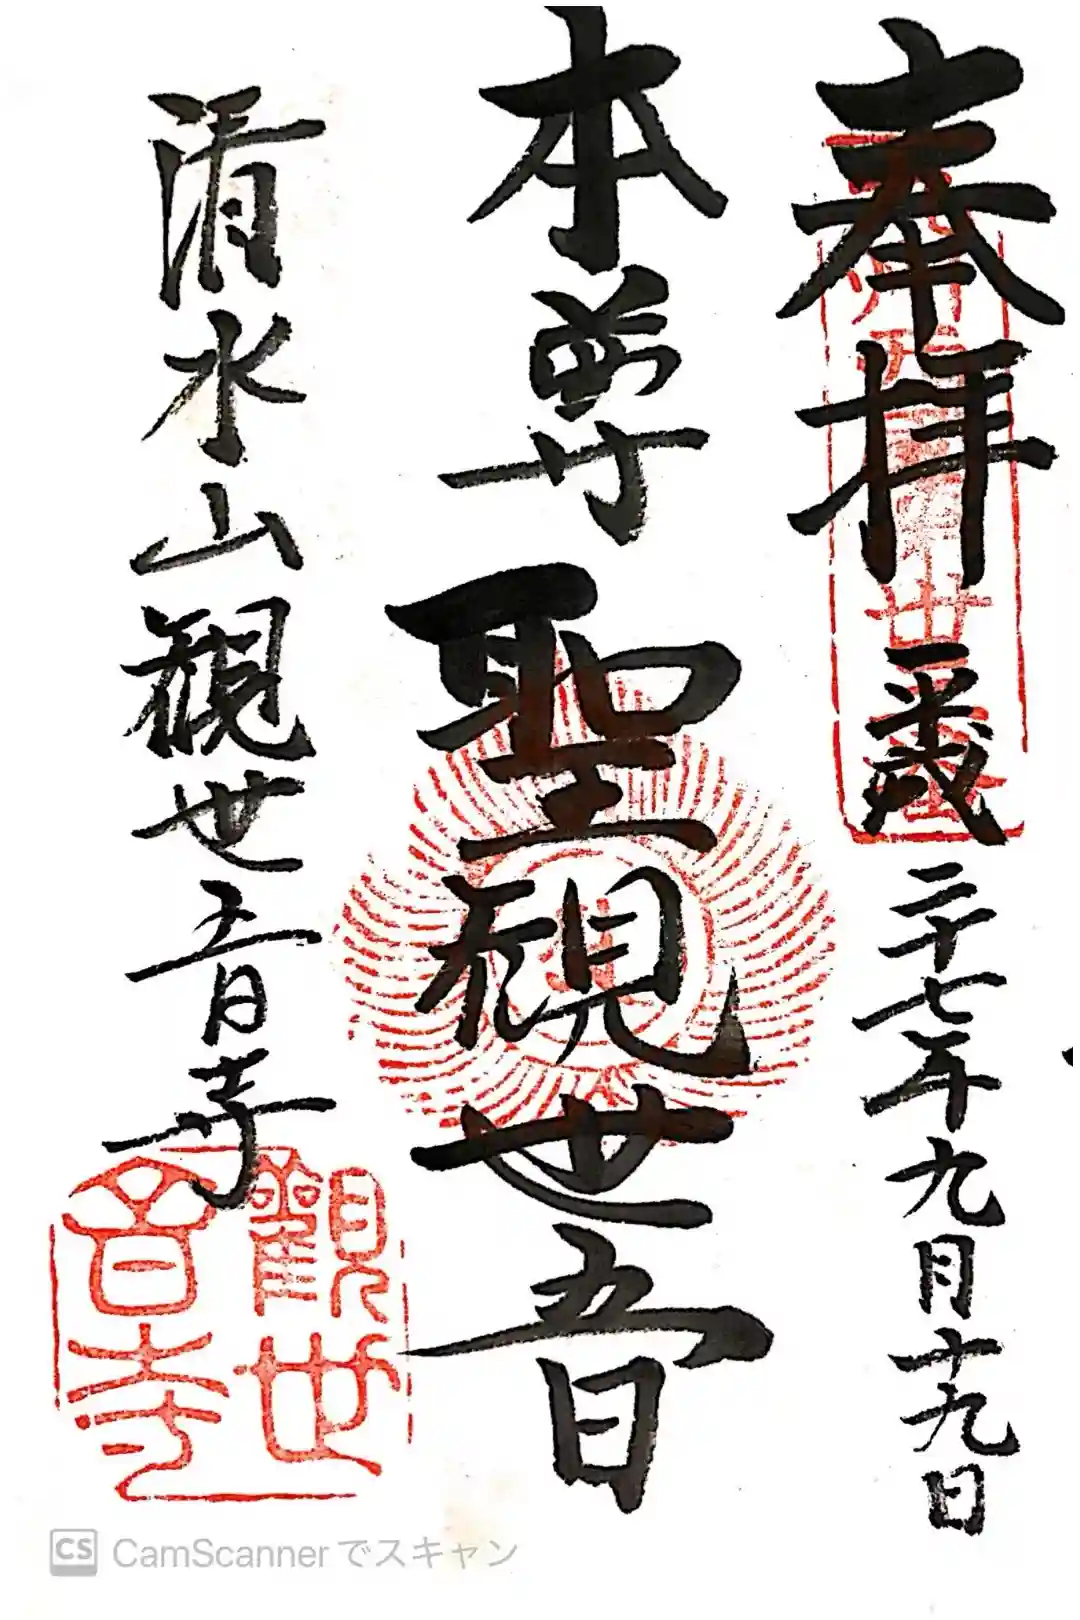 奉拝 平成二十七年九月十九日
本尊 聖観世音
清水山観世音寺
觀世
音寺
CS CamScannerでスキャン